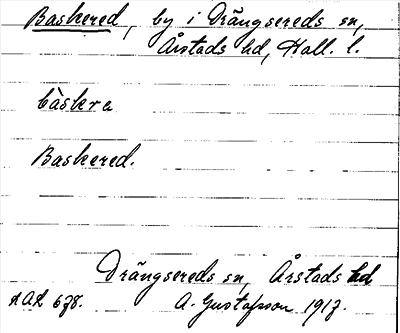 Baskered, by i Drängsereds sn,
Årstads hd, Hall. l.
bàskra
Baskered.
Drängsereds sn, Årstads hd
AOA 678. A. Gustafsson 1917.